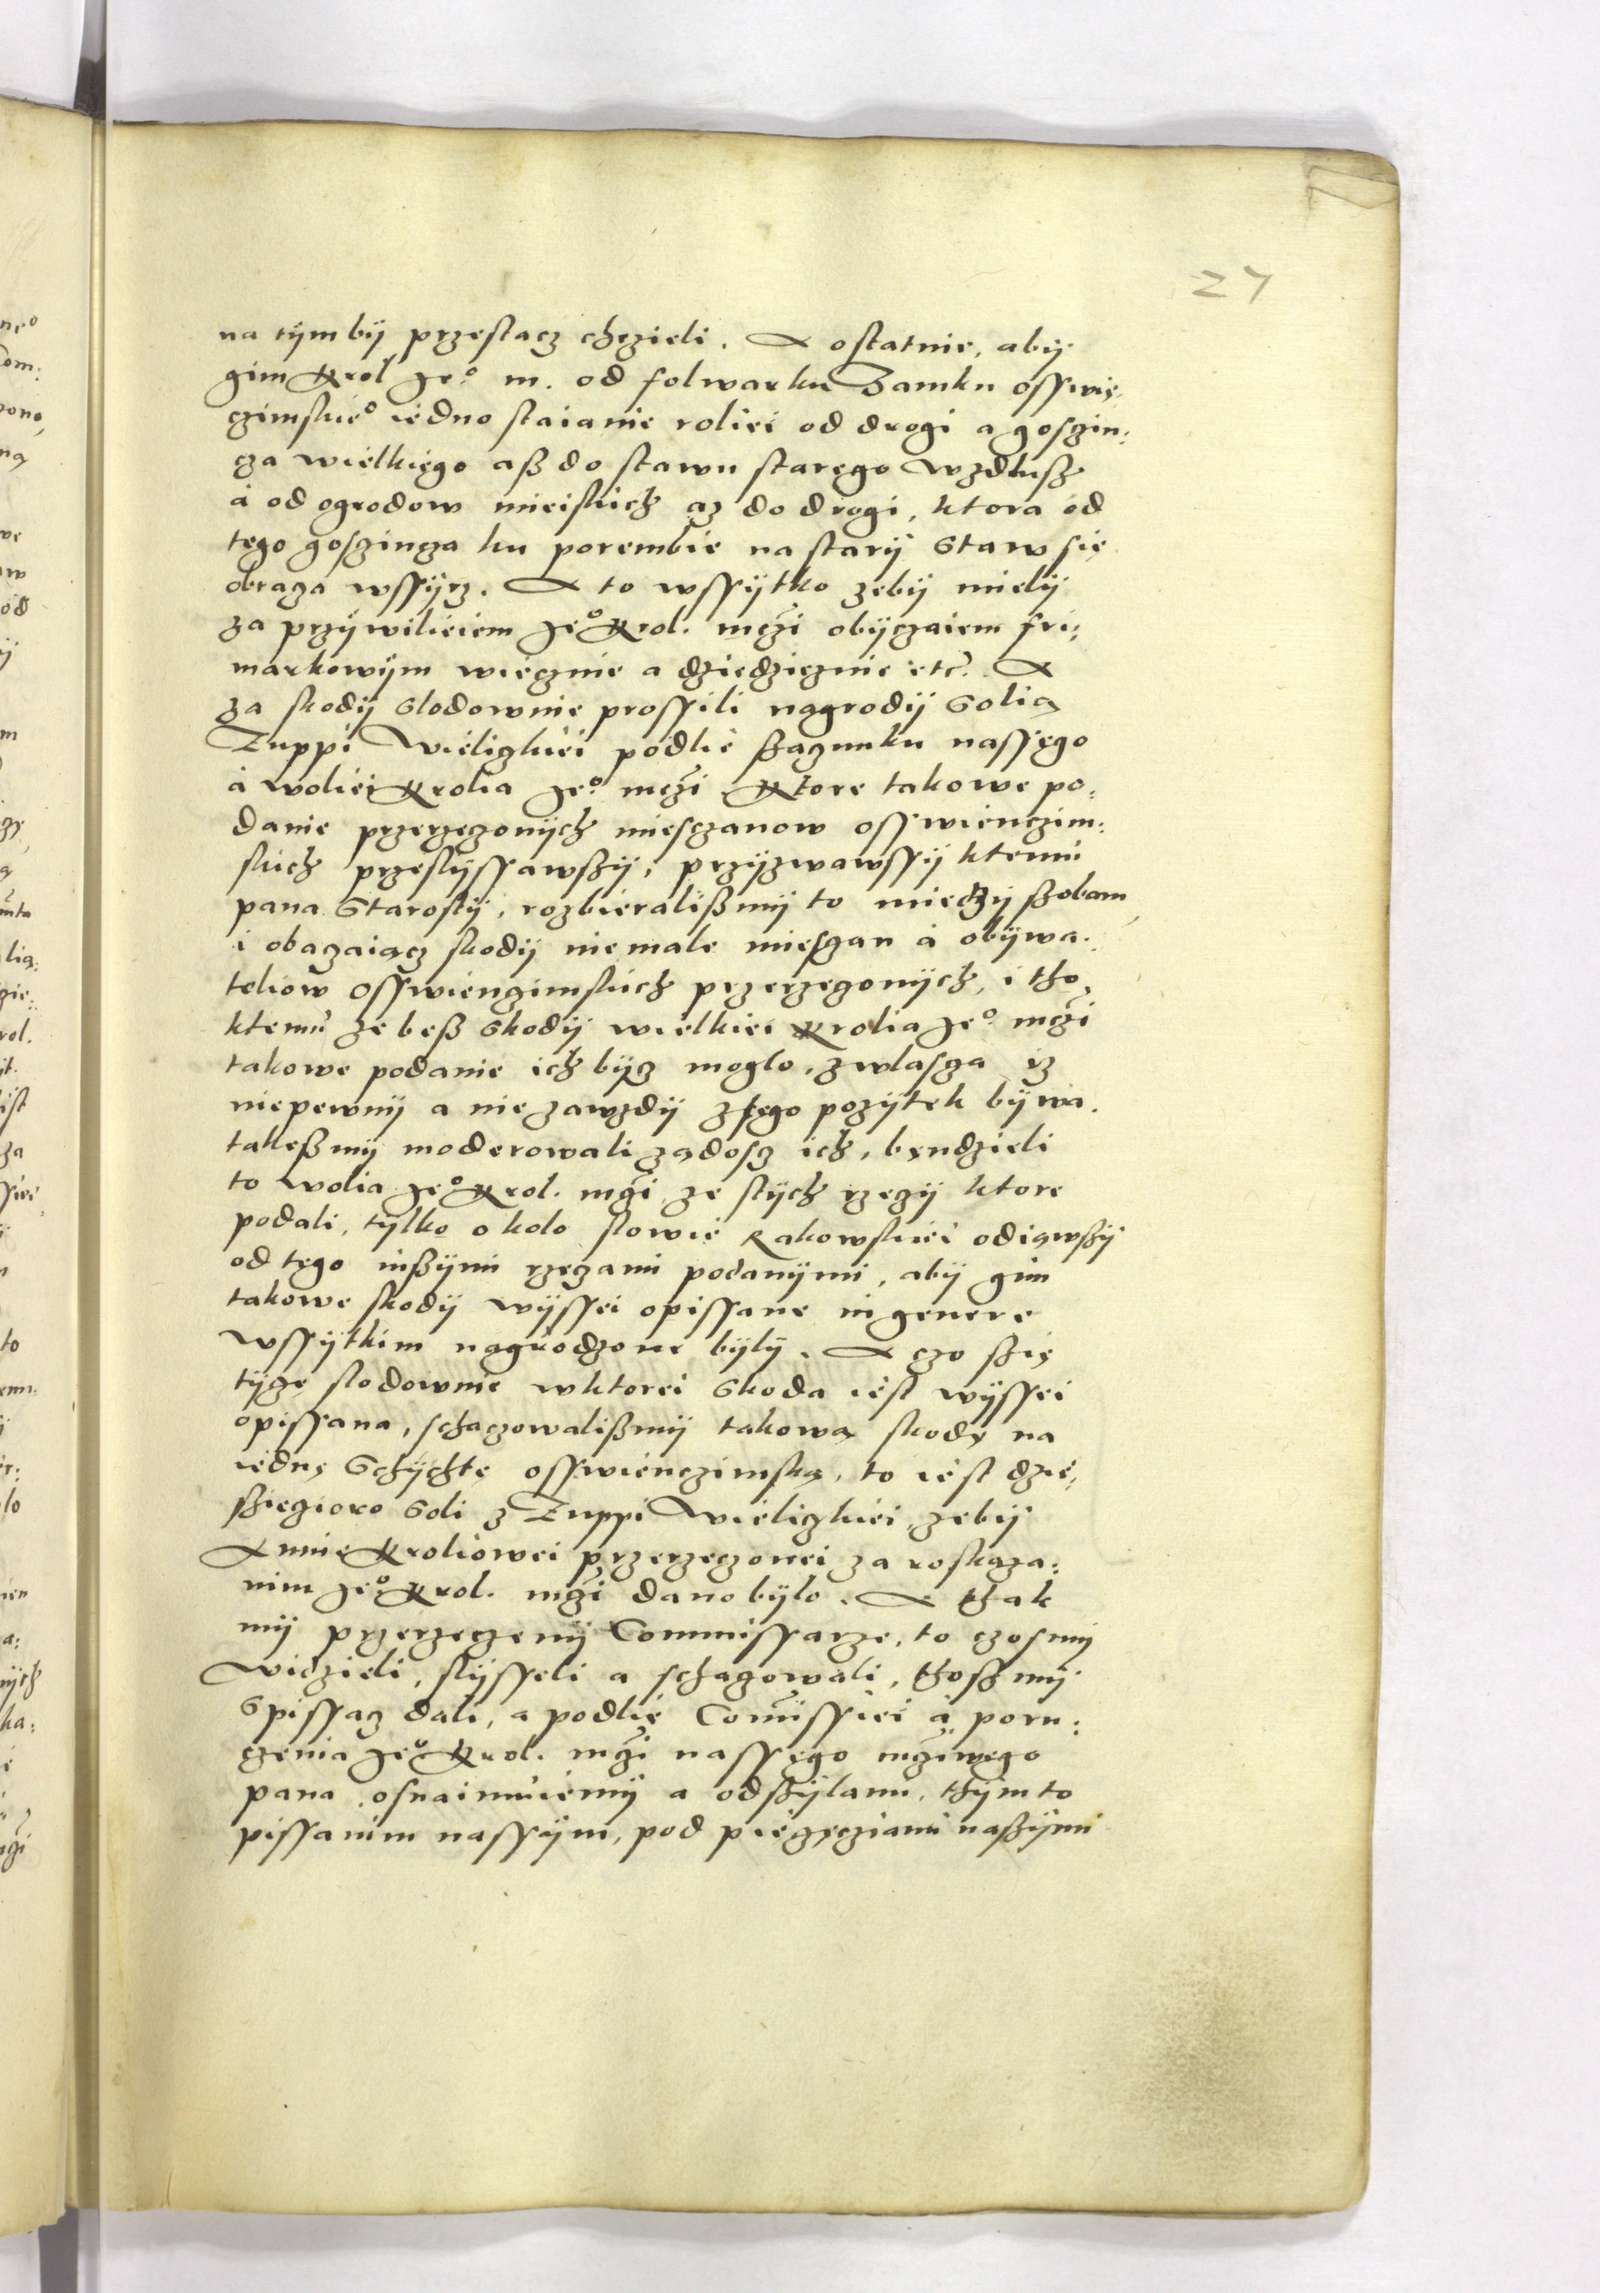 27
na tÿm bÿ przestacz chczieli. A ostatnie, abÿ
gim Krol Je° m. od folwarku Zamku osswię:
czimskie° iedno staianie roliei od drogi a goszin:
cza wielkiego aß do stawu starego wzdlusz
á od ogrodow mieiskich az do drogi, ktora od
tego goszincza ku porembie na starÿ Staw się
obraza wssÿrz. A to wssÿtko zebÿ mielÿ
za przÿwileiem Je° Krol. mczi obÿczaiem fri:
markowÿm wiecznie a dziedzicznie etc. A
za skodÿ Slodownie prossili nagrodÿ Solią
Zuppi Wieliczkiei podlie szaczunku nassego
á woliei Krolia Je° mczi. Ktore takowe po:
danie przerzeczonÿch miesczanow osswienczim:
skich przeslÿssawszÿ, przÿzwawssÿ ktemu
pana Starostÿ, rozbieralißmÿ to miedzÿ szobam,
i obaczaiącz skodÿ niemale miesczan á obÿwa:
teliow osswienczimskich przerzeczonÿch, i tho,
ktemu ze beß Skodÿ wielkiei Krolia Je° mczi
takowe podanie ich bÿcz moglo, zwlasza iz
niepewnÿ a nie zawzdÿ z tego pozÿtek bÿwa.
takeßmÿ moderowali ządosz ich, bęndzieli
to wolia Je° Krol. mczi ze stÿch rzeczÿ ktore
podali, tÿlko okolo slowie Rakowskiei odiąwszÿ
od tego inszÿmi rzeczami podanÿmi, abÿ gim
takowe skodÿ wÿssei opissane in genere
wssÿtkim nagrodzone bÿlÿ. A czo szię
tÿcze slodownie wktorei Skoda iest wÿssei
opissana, schaczowalißmÿ takową skodę na
iednę Schÿchtę osswienczimską, to iest dzie:
sziecioro Soli z Zuppi Wieliczkiei, zebÿ
Annie Kroliowei przerzeczonei za roskaza:
nim Je° Krol. mczi dano bÿlo. A thak
mÿ przerzeczenÿ Commissarze, to czosmÿ
widzieli, slÿsseli a schaczowali, thoszmÿ
Spissacz dali, a podlie Comissiei á poru:
czenia Je° Krol. mczi nassego mcziwego
pana osnaimuiemÿ a odszÿlamÿ, thÿm to
pissanim nassÿm, pod pieczęcziami naszÿmi